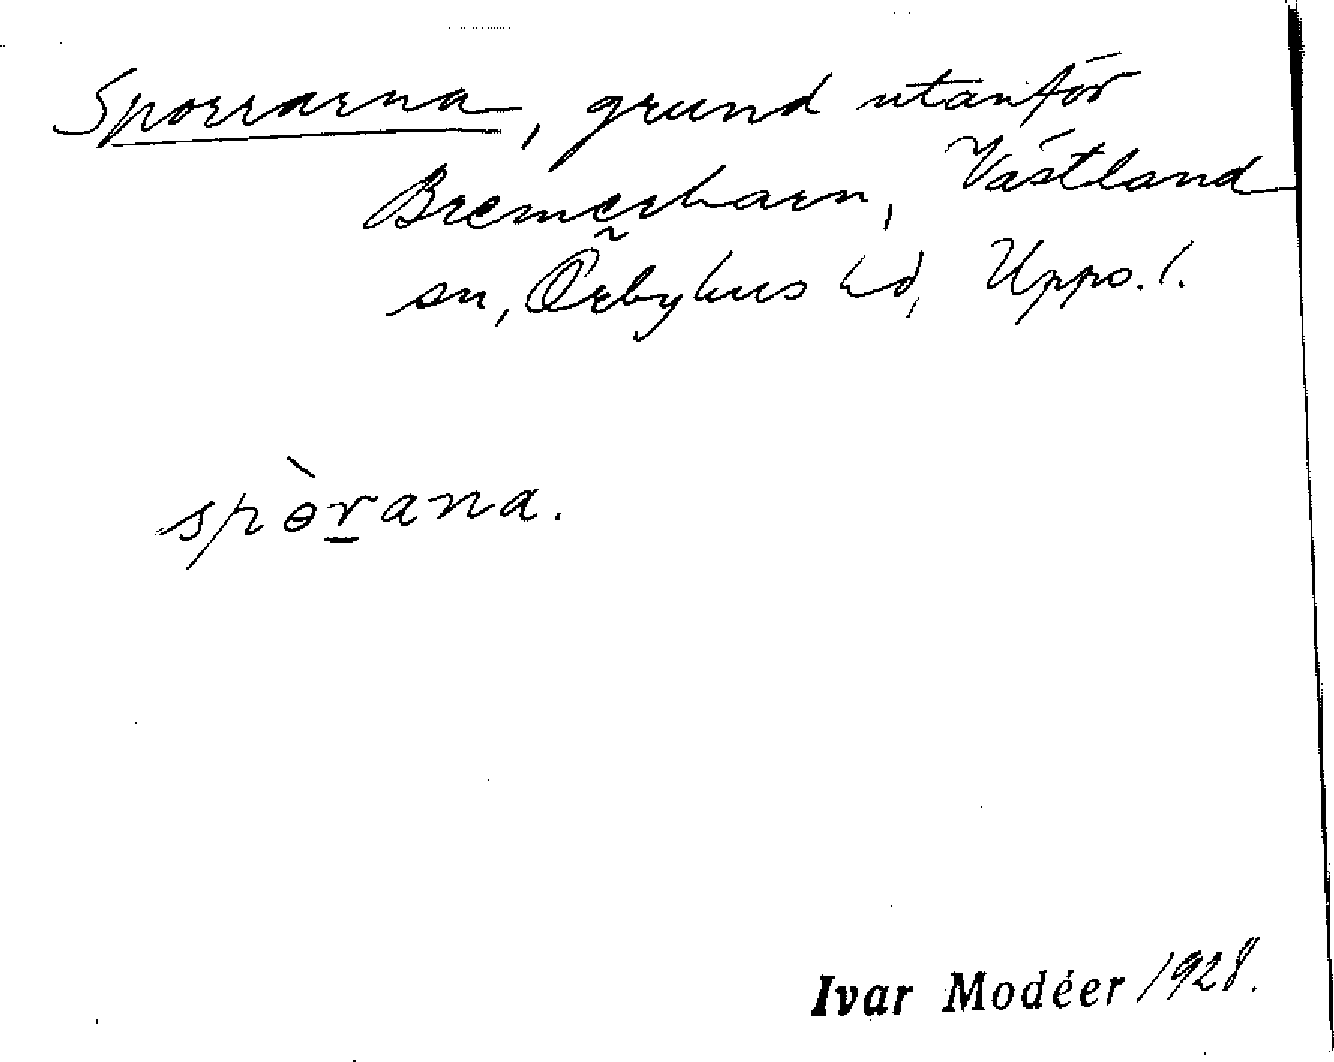 Sporrarna, grund utanför
Bremerharn, Västland
sn, Örbyhus hd, Upps. l.
spɵ̀r̲ana.
Ivar Modéer /1928.